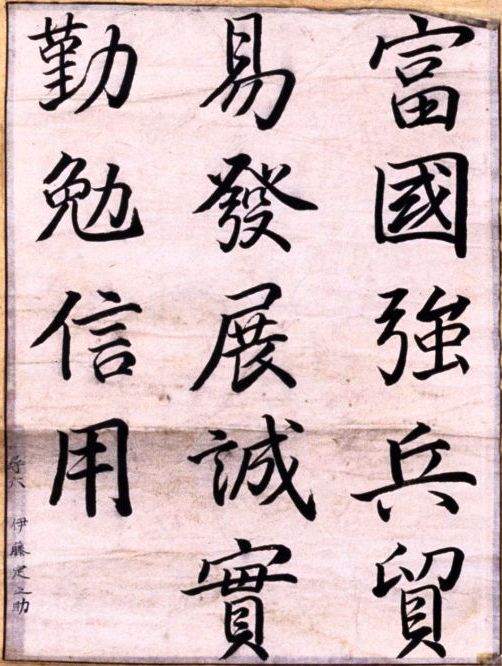 富國強兵貿
易發展誠實
勤勉信用
尋六 伊藤定之助